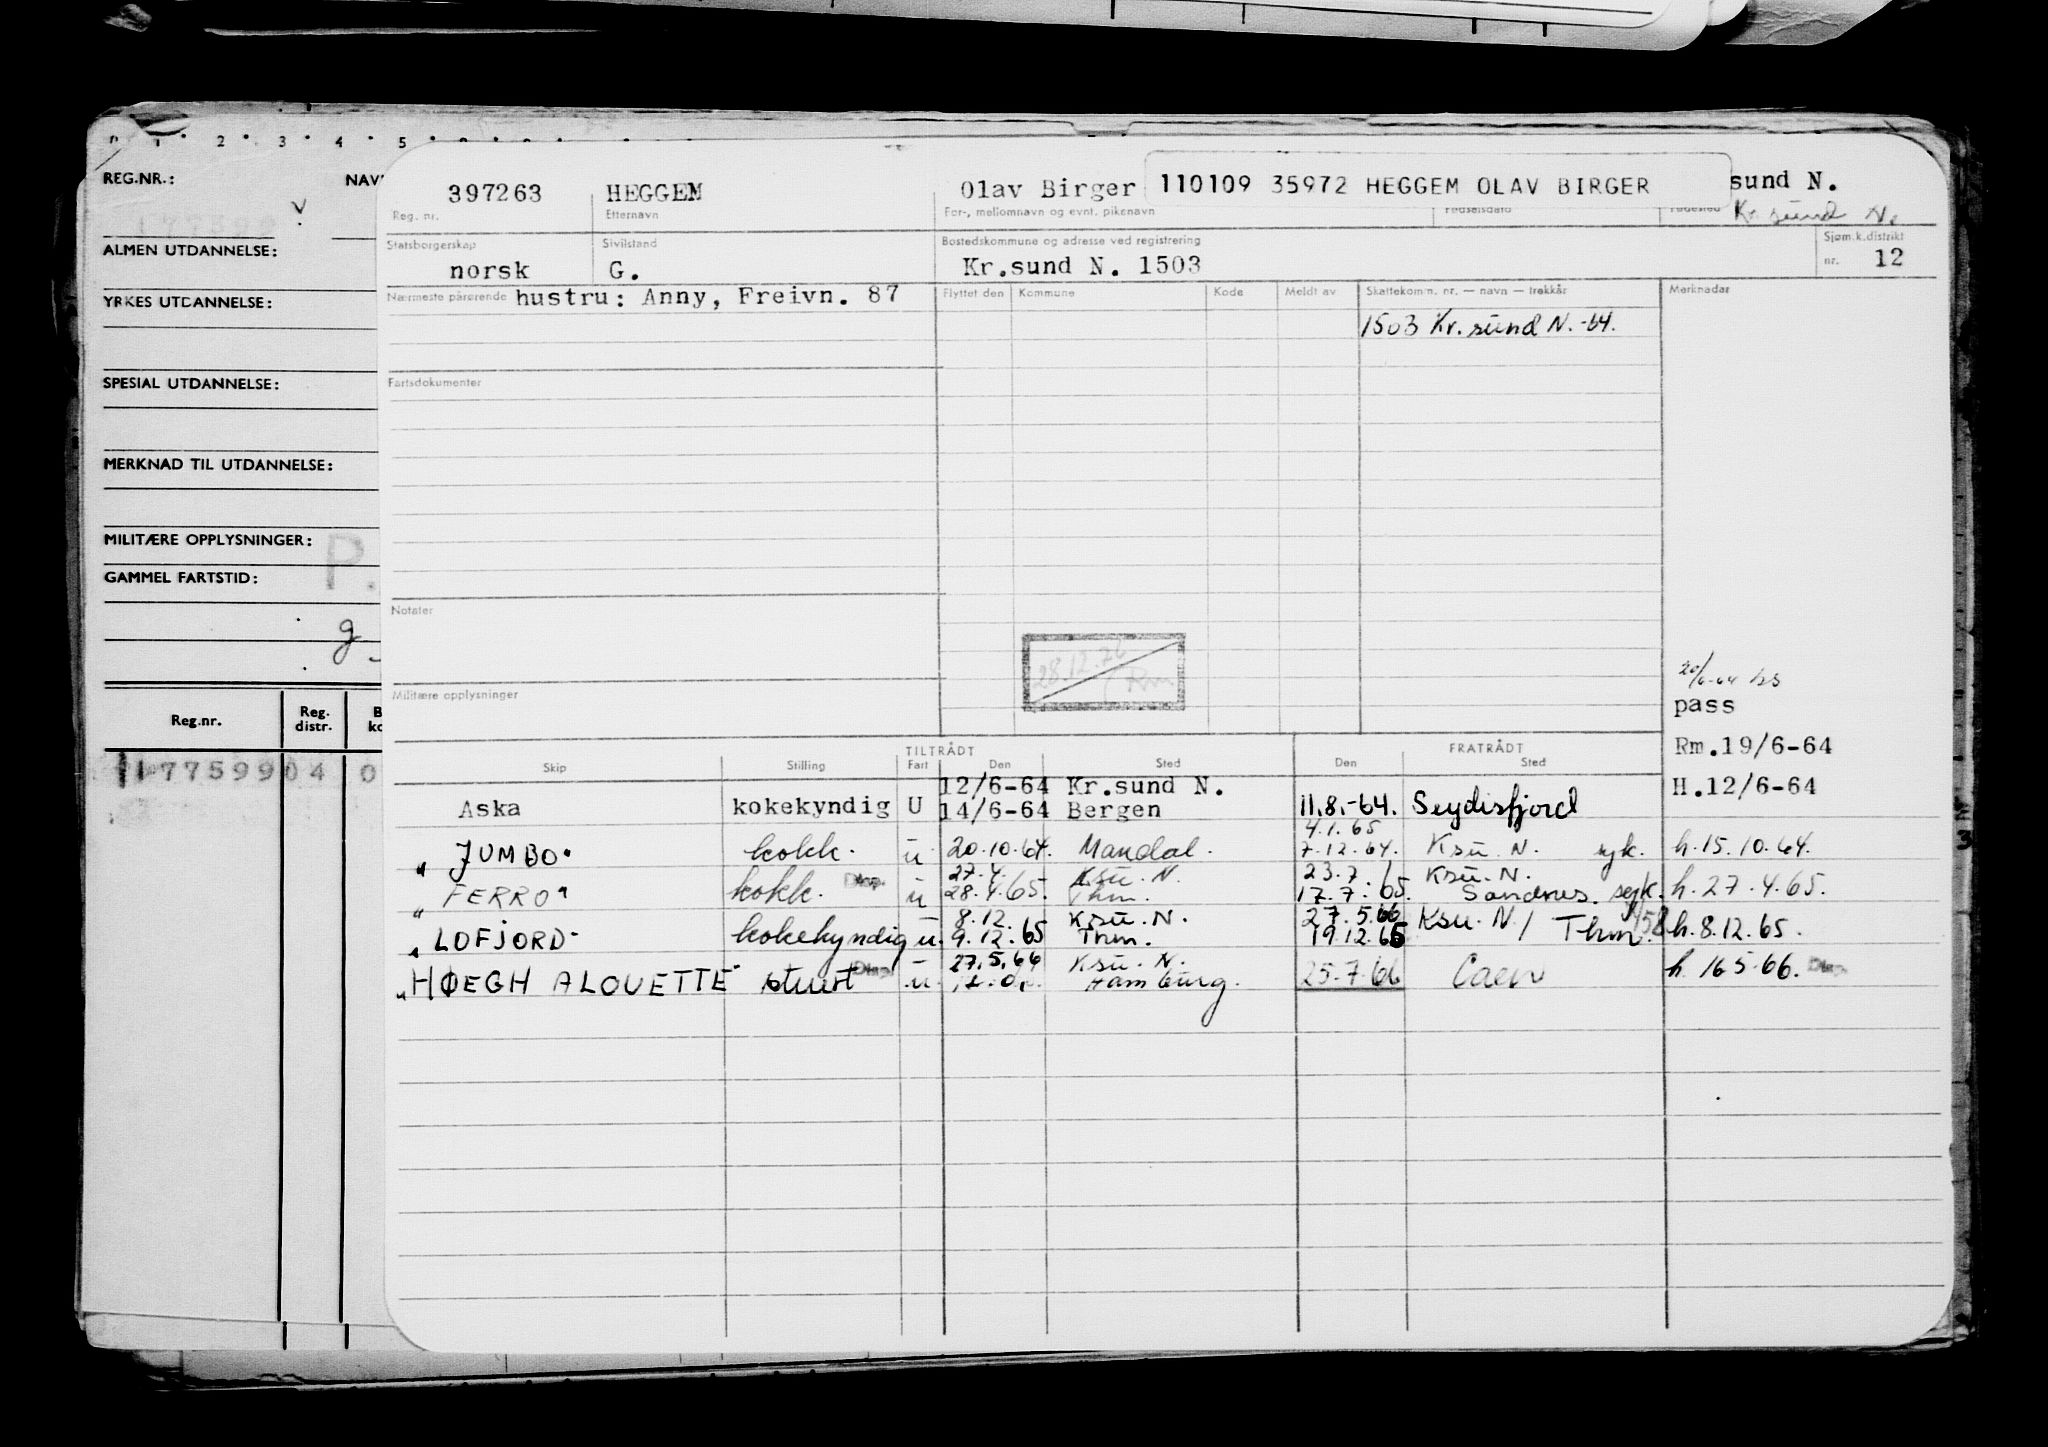 0 1 2 3 4 5
REG.NR.:
NAV
ALMEN UTDANNELSE:
YRKES UTDANNELSE:
SPESIAL UTDANNELSE:
MERKNAD TIL UTDANNELSE:
MILITÆRE OPPLYSNINGER:
P.
GAMMEL FARTSTID:
g
Reg.nr.
Reg. distr.
177599 04 0
397263 HEGGEM Olav Birger 110109 35972 HEGGEM OLAV BIRGER sund N.
Reg. nr. Etternavn For-, mellomnavn og evnt. pikenavn Fødselsdato Fødested Kr.sund N.
Statsborgerskap Sivilstand Bostedskommune og adresse ved registrering Sjøm.k.distrikt
norsk G. Kr.sund N. 1503 nr. 12
Nærmeste pårørende hustru: Anny, Freivn. 87 Flyttet den Kommune Kode Meldt av Skattekomm. nr. — navn — trekkår Merknader
1503 Kr.sund N.-64.
Fartsdokumenter
Notater
28.12.76
Rm
Militære opplysninger
20/6-64
pass
Rm.19/6-64
H.12/6-64
TILTRÅDT FRATRÅDT
Skip Stilling Fart Den Sted Den Sted
12/6-64 Kr.sund N.
Aska kokekyndig U 14/6-64 Bergen 11.8.-64. Seydisfjord
4.1.65
"JUMBO" kokk. u. 20.10.64. Mandal. 7.12.64. Ksu. N. syk. h.15.10.64.
27.4. Ksu. N. 23.7. Ksu. N.
"FERRO" kokk. Disp. u 28.4.65. Thm. 17.7.65. Sandnes. syk. h.27.4.65.
8.12. Ksu. N. 27.5.66 Ksu. N./
"LOFJORD" kokekyndig u. 9.12.65 Thm. 19.12.65 Thm. h.8.12.65.
27.5.66 Ksu. N.
"HØEGH ALOUETTE" stuert Disp. u. Hamburg. 25.7.66 Caen h.16.5.66. Disp.